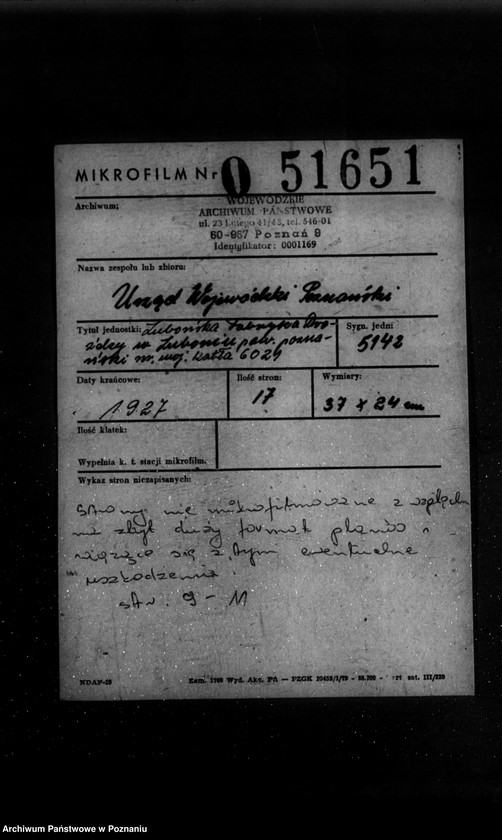 MIKROFILM Nr 0 51651
Archiwum:
WOJEWÓDZKIE
ARCHIWUM PAŃSTWOWE
ul. 23 Lutego 41/43, tel. 546-01
60-967 Poznań 9
Identyfikator: 0001169
Nazwa zespołu lub zbioru:
Urząd Wojewódzki Poznański
Tytuł jednostki: Lubońska Fabryka Droż-
dży w Luboniu pow. pozna-
ński nr. woj. kotła 6029
Sygn. jedn:
5142
Daty krańcowe:
1927
Ilość stron:
17
Wymiary:
37 x 24 cm
Ilość klatek:
Wypełnia k. t. stacji mikrofilm.
Wykaz stron niezapisanych:
Strony nie mikrofilmowane z względu
na zbyt duży format planów i
wiążące się z tym eventualne
uszkodzenia.
str. 9 - 11
NDAP-25
Zam. 1768 Wyd. Akc. PA — PZGK
Archiwum Państwowe w Poznaniu